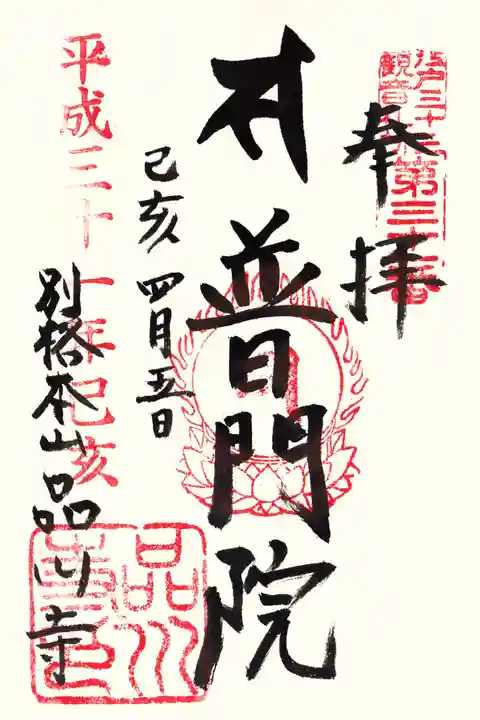 奉拝
江戸三十三
観音札所
第三十一番
普門院
己亥四月五日
平成三十一年己亥
別格本山品川寺